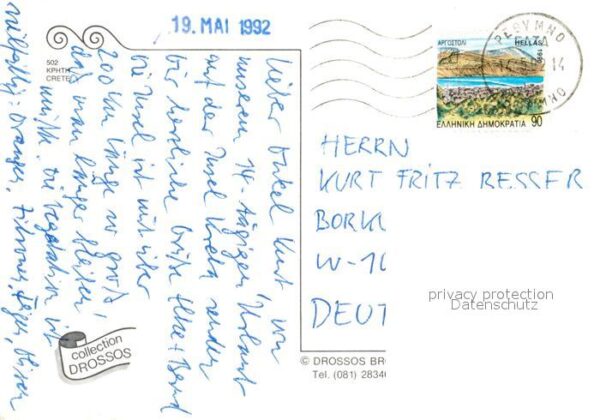 19. MAI 1992
502
ΚΡΗΤΗ
CRETE
Lieber Onkel Kurt, von
unserem 14-tägigen Urlaub
auf der Insel Kreta senden
wir herzliche Grüße
Die Insel ist mit über
200 km Länge so groß,
daß man länger bleiben
müßte. Die Vegetation ist
vielfältig: Orangen, Zitronen, Feigen,
collection
DROSSOS
© DROSSOS BR
Tel. (081) 2834
ΑΡΓΟΣΤΟΛΙ
HELLAS
ΕΛΛΗΝΙΚΗ ΔΗΜΟΚΡΑΤΙΑ 90
ΡΕΘΥΜΝΟ
14
HERRN
KURT FRITZ RESSER
BORK
W-10
DEUT
privacy protection
Datenschutz